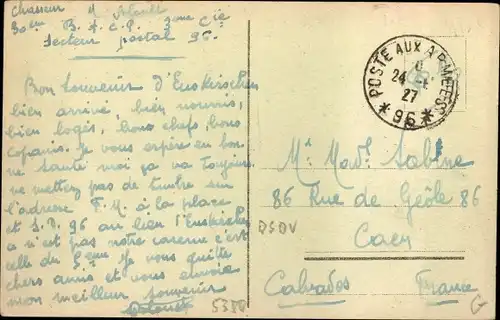 Chasseur M.
30em B. A. C. P. 3eme Cie
Secteur postal 96.
Bon Souvenir d'Euskirschen
bien arrivé, bien nourris,
bien logés, bons chefs, bons
copains. Je vous espère en bon
ne santé moi ça va toujours.
ne mettez pas de timbre sur
l'adresse F. M. à la place
et S. P. 96 au lien l'Euskirschen
a s'est pas notre caserne c'est
celle du Je vous quitte
chers amis et vous envoie
mon meilleur souvenir
5380
POSTE AUX ARMEES
24
27
* 96 *
Mr Mad. Sabine
86 Rue de Geôle 86
DSDV
Caen
Calvados France